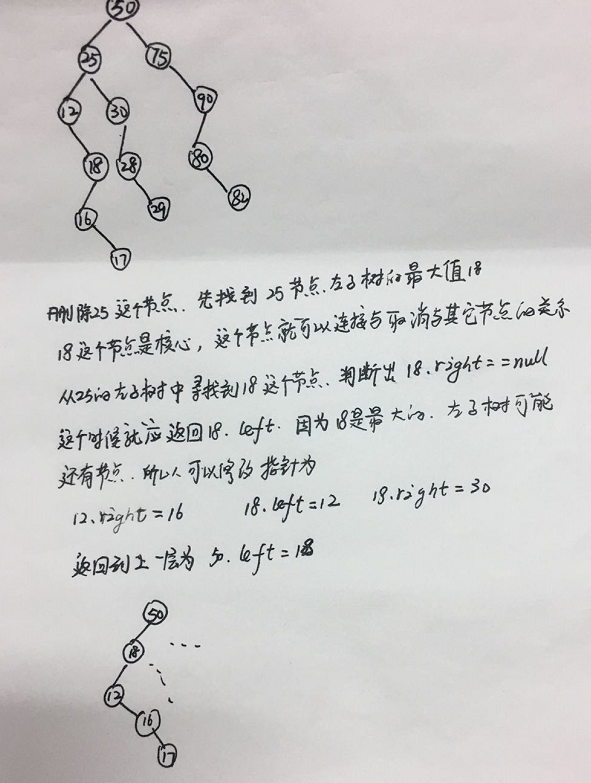 50
25 75
12 30 90
18 28 80
16 29 82
17
删除25这个节点. 先找到25节点.左子树的最大值18
18这个节点是核心, 这个节点就可以连接与取消与其它节点的关系
从25的左子树中寻找到18这个节点. 判断出 18.right==null
这个时候就应返回18.left. 因为18是最大的. 左子树可能
还有节点. 所以可以修改指针为
12.right=16 18.left=12 18.right=30
返回到上一层为 50.left=18
50
18
12
16
17